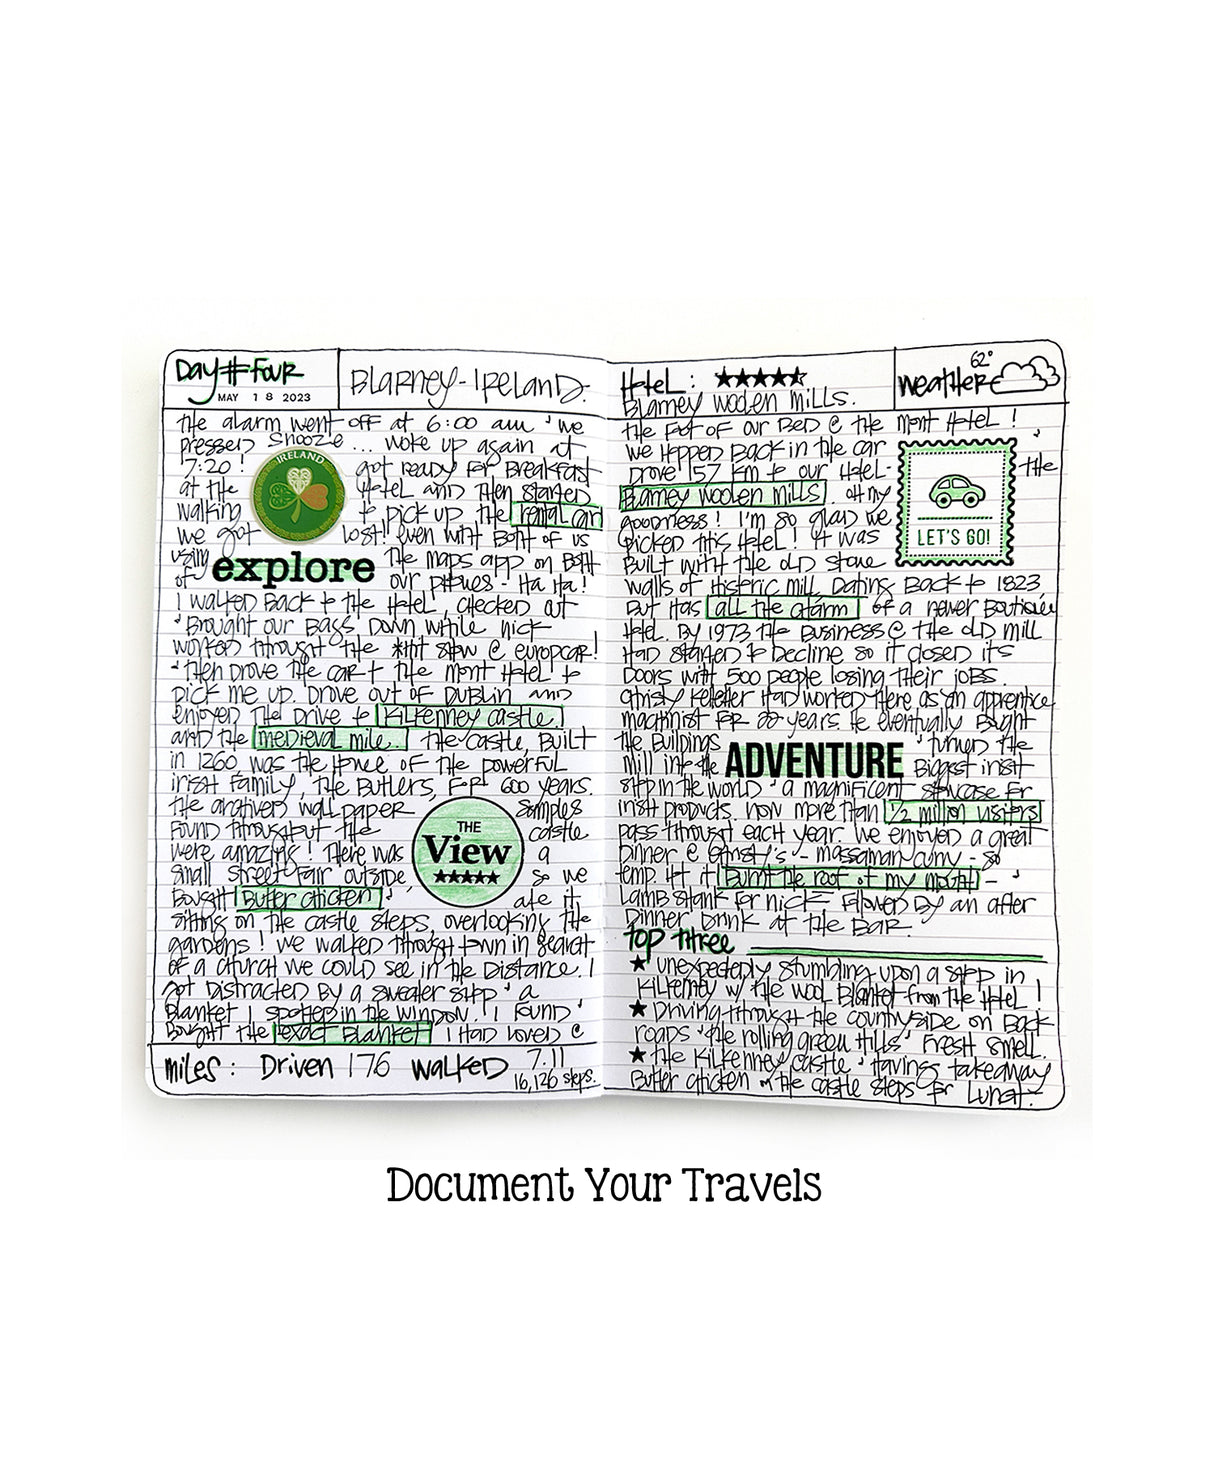 Day # Four
MAY 18 2023
Blarney - Ireland.
the alarm went off at 6:00 am 'we
pressed snooze ... woke up again at
7:20! got ready for breakfast
at the Hotel and then started
walking to pick up the rental car
we got lost! even with both of us
using the maps app on both
of our phones - Ha Ha!
IRELAND
explore
I walked back to the Hotel, checked out
'brought our bags down while nick
worked through the *hit show @ europcar!
'then drove the car to the mont Hotel to
pick me up. Drove out of Dublin and
enjoyed the drive to Kilkenney castle.
and the medieval mile. The castle, built
in 1260 was the home of the powerful
irish family, the Butlers, for 600 years.
the archived wall paper samples
found throughout the castle
were amazing! There was a
small street fair outside so we
bought butter chicken ' ate it
THE
View
sitting on the castle steps, overlooking the
gardens! we walked through town in search
of a church we could see in the distance. I
got distracted by a sweater shop ' a
blanket I spotted in the window. I found '
bought the exact blanket I had loved @
miles: Driven 176 walked 7.11
16,126 steps.
Hotel: ★★★★★
Blarney woolen mills.
62°
weather
the foot of our bed @ the mont Hotel!
we hopped back in the car ' the
drove 157 km to our Hotel -
Blarney woolen mills. oh my
goodness! I'm so glad we
picked this Hotel! It was
built with the old stone
LET'S GO!
walls of historic mill dating back to 1823,
but has all the charm of a newer boutique
Hotel. By 1973 the business @ the old mill
had started to decline so it closed its
doors with 500 people losing their jobs.
Christy Kelleher had worked there as an apprentice
machinist for years. He eventually bought
the buildings ' turned the
mill into the biggest irish
ADVENTURE
shop in the world ' a magnificent showcase for
irish products. now more than 1/2 million visitors
pass through each year. we enjoyed a great
dinner @ Christy's - massaman curry - so
temp. hot it burnt the roof of my mouth - '
lamb shank for nick followed by an after
dinner drink at the bar.
top three
★ unexpectedly stumbling upon a shop in
Kilkenny w/ the wool blanket from the Hotel!
★ Driving through the countryside on back
roads 'the rolling green hills' fresh smell.
★ the Kilkenney castle ' having takeaway
Butter chicken on the castle steps for Lunch.
Document Your Travels